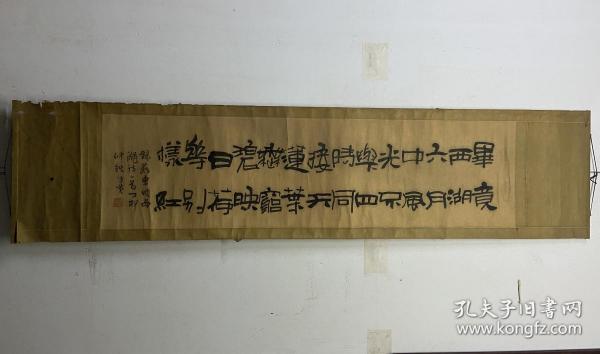 畢竟
西湖
六月
中風
光不
與四
時同
接天
蓮葉
無窮
碧映
日荷
華別
樣紅
湖詩一首丁卯
仲秋
孔夫子旧书网
www.kongfz.com